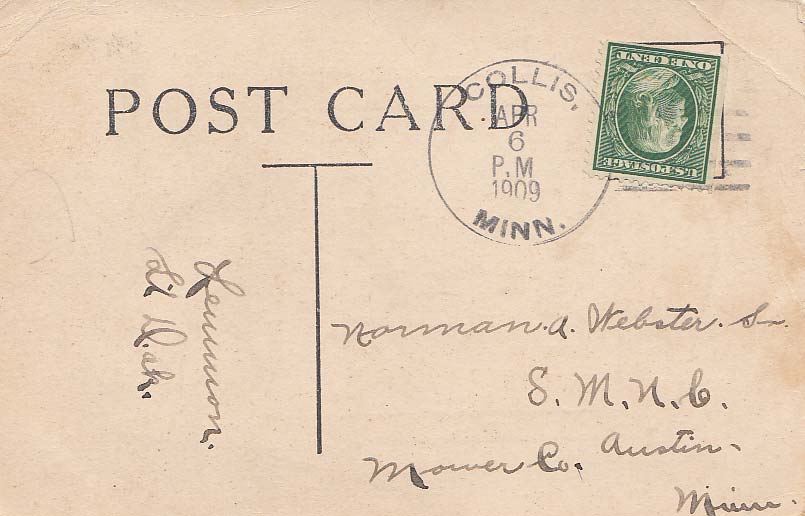 POST CARD
COLLIS,
APR
6
P.M
1909
MINN.
ONE CENT
U.S. POSTAGE
Lemmon.
S. Dak.
Norman. A. Webster. Sr.
S. M. N. C.
Austin.
Mower Co.
Minn.